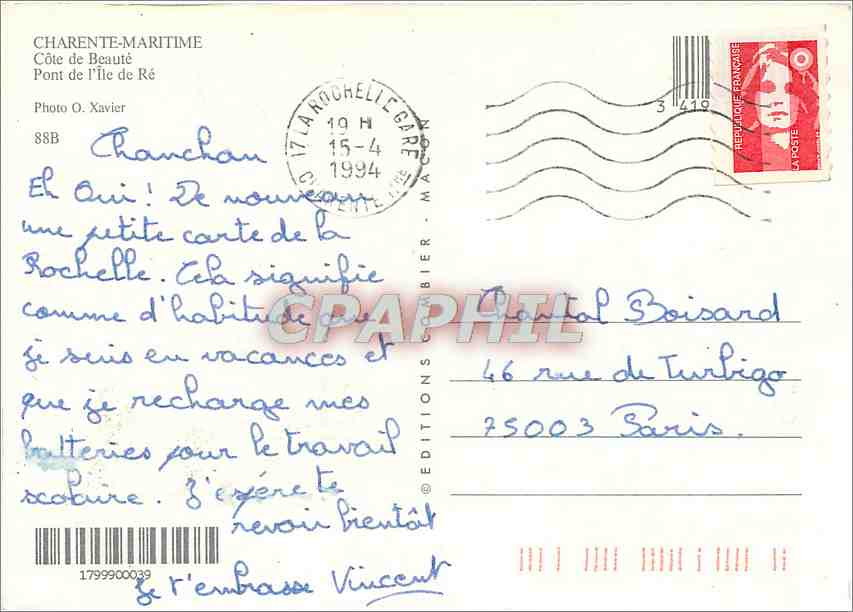 CHARENTE-MARITIME
Côte de Beauté
Pont de l'Île de Ré
Photo O. Xavier
88B
17 LA ROCHELLE GARE
19 H
15-4
1994
CHARENTE
3 419
REPUBLIQUE FRANÇAISE
LA POSTE
Chanchan
Eh Oui! De nouveau
une petite carte de la
Rochelle. Cela signifie
comme d'habitude que
je suis en vacances et
que je recharge mes
batteries pour le travail
scolaire. J'espère te
revoir bientôt
Je t'embrasse Vincent
1799900039
© EDITIONS COMBIER - MACON
CPAPHIL
Chantal Boisard
46 rue de Turbigo
75003 Paris.